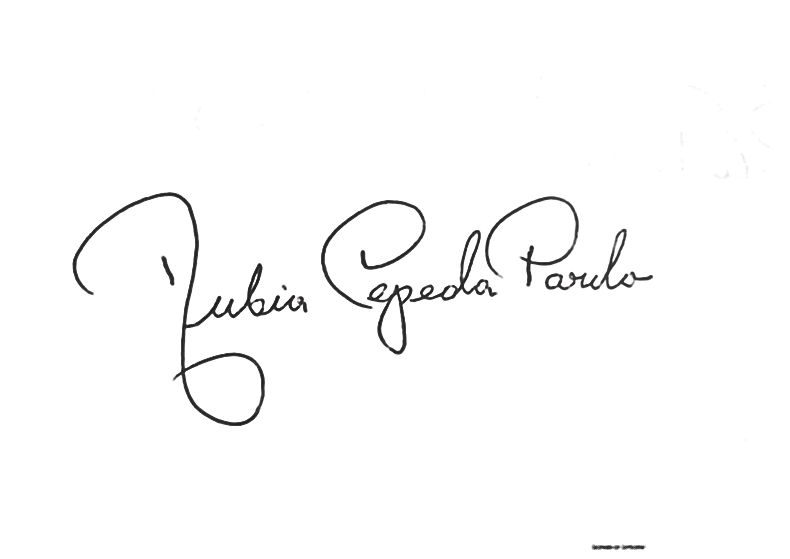 Rubia Cepeda Pardo